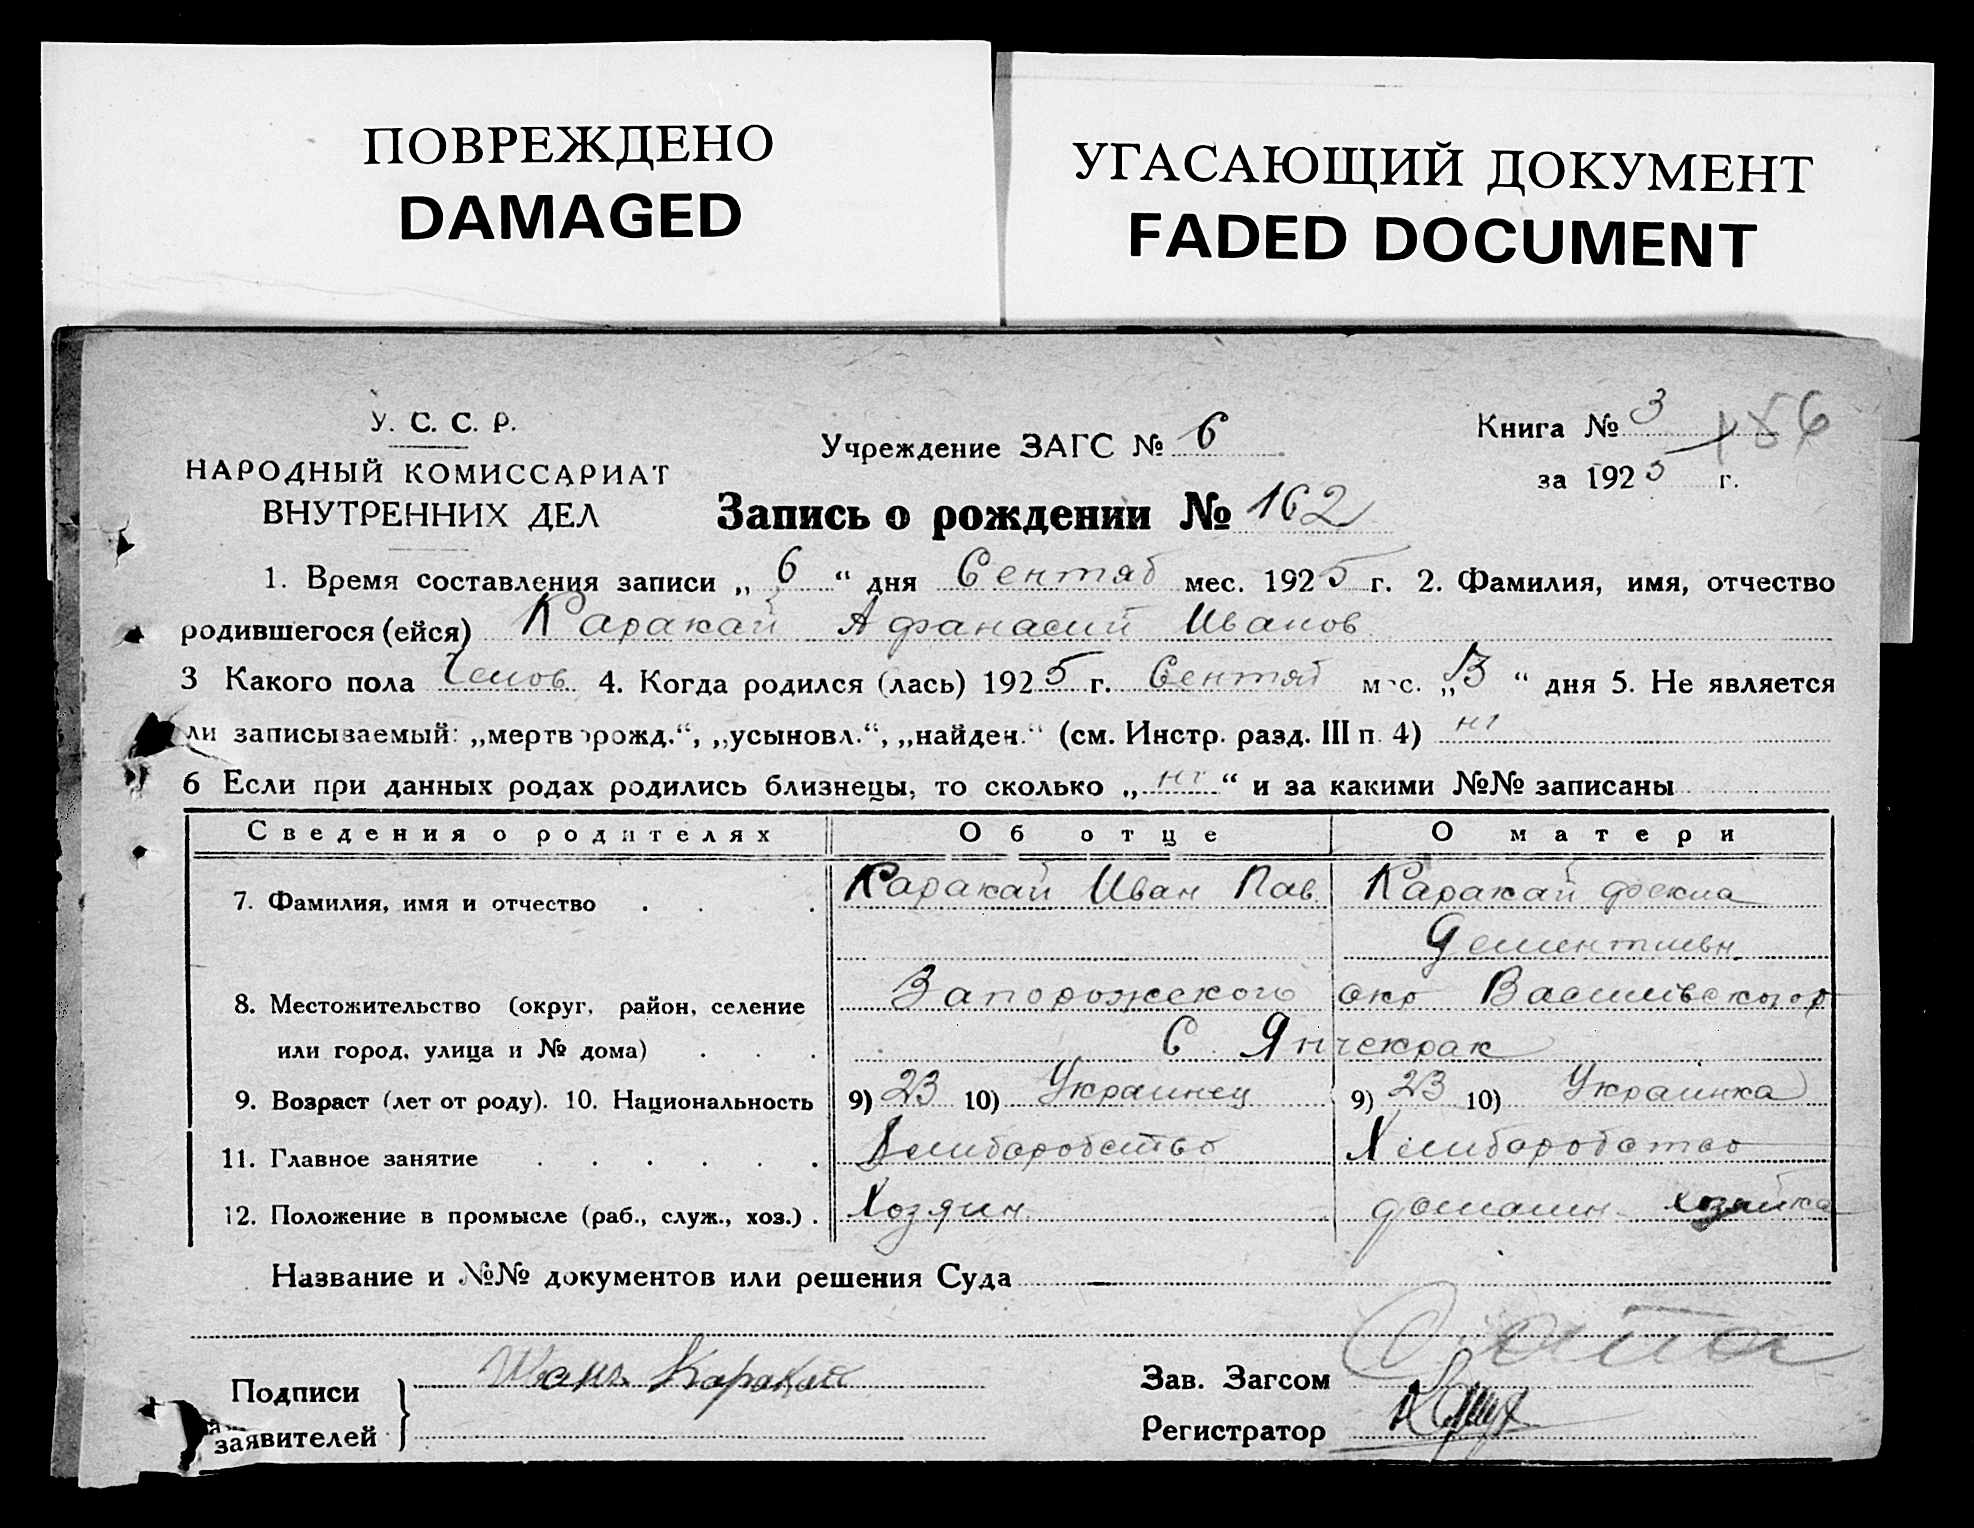 ПОВРЕЖДЕНО
DAMAGED
УГАСАЮЩИЙ ДОКУМЕНТ
FADED DOCUMENT
У. С. С. Р.
НАРОДНЫЙ КОМИССАРИАТ
ВНУТРЕННИХ ДЕЛ
Учреждение ЗАГС № 6
Книга № 3
186
за 1925 г.
Запись о рождении № 162
1. Время составления записи „ 6 “ дня Сентяб мес. 1925 г. 2. Фамилия, имя, отчество
родившегося (ейся) Каракай Афанасий Иванов
3 Какого пола Челов 4. Когда родился (лась) 1925 г. Сентяб мес. „ 3 “ дня 5. Не является
ли записываемый: „мертворожд.“, „усыновл.“, „найден.“ (см. Инстр. разд. III п. 4) нт
6 Если при данных родах родились близнецы, то сколько „ нт “ и за какими №№ записаны
Сведения о родителях Об отце О матери
7. Фамилия, имя и отчество . . . . Каракай Иван Пав. Каракай Фекла
Дементиевн.
8. Местожительство (округ, район, селение Запорожского окр Васи­ливского р
или город, улица и № дома) . . . С. Янчекрак
9. Возраст (лет от роду). 10. Национальность 9) 23 10) Украинец 9) 23 10) Украинка
11. Главное занятие . . . . . . Хлиборобство Хлиборобство
12. Положение в промысле (раб., служ., хоз.) . Хозяин домашн. хозяйка
Название и №№ документов или решения Суда —
Подписи
заявителей
Иванъ Каракай
Зав. Загсом
Регистратор